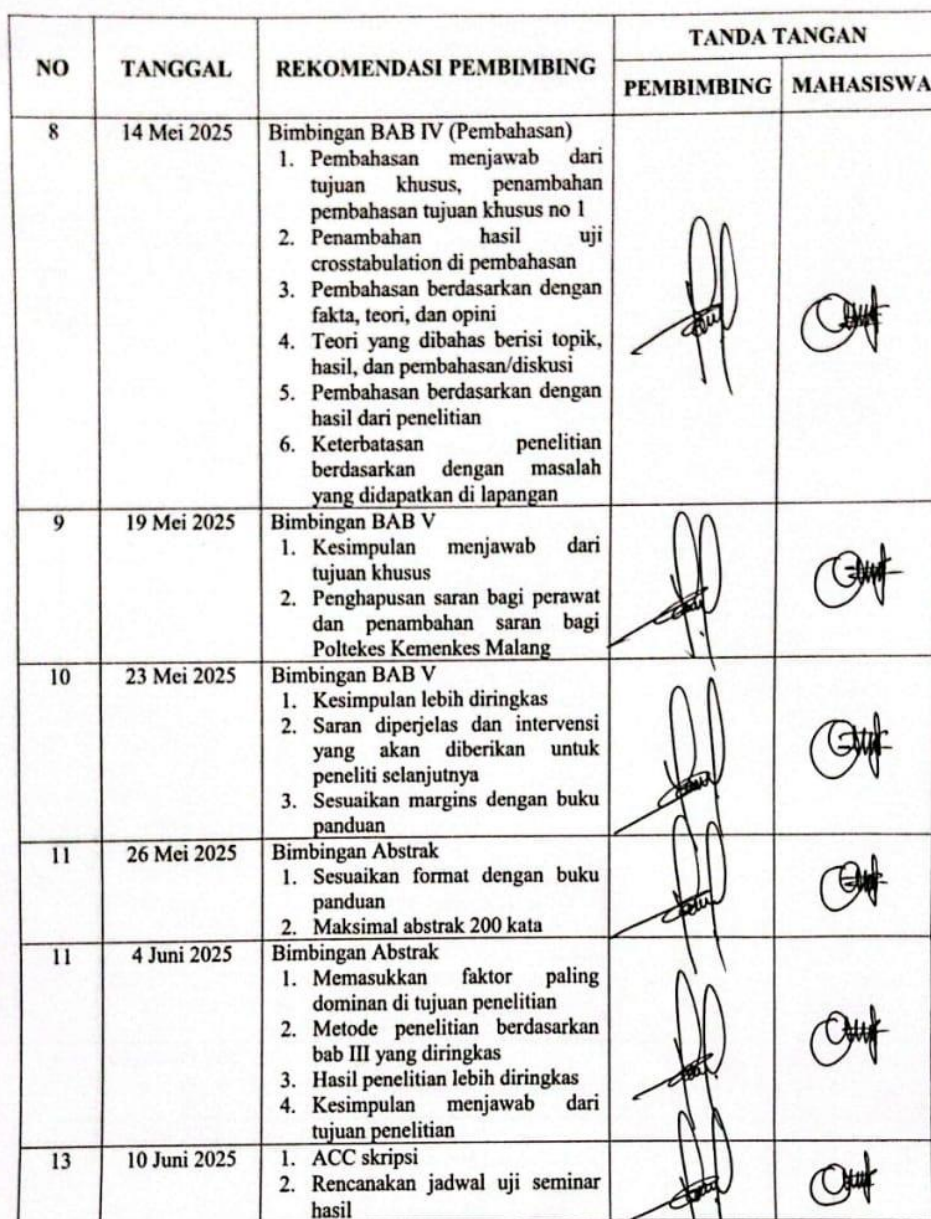 NO TANGGAL REKOMENDASI PEMBIMBING TANDA TANGAN
PEMBIMBING MAHASISWA
8 14 Mei 2025 Bimbingan BAB IV (Pembahasan)
1. Pembahasan menjawab dari
tujuan khusus, penambahan
pembahasan tujuan khusus no 1
2. Penambahan hasil uji
crosstabulation di pembahasan
3. Pembahasan berdasarkan dengan
fakta, teori, dan opini
4. Teori yang dibahas berisi topik,
hasil, dan pembahasan/diskusi
5. Pembahasan berdasarkan dengan
hasil dari penelitian
6. Keterbatasan penelitian
berdasarkan dengan masalah
yang didapatkan di lapangan
9 19 Mei 2025 Bimbingan BAB V
1. Kesimpulan menjawab dari
tujuan khusus
2. Penghapusan saran bagi perawat
dan penambahan saran bagi
Poltekes Kemenkes Malang
10 23 Mei 2025 Bimbingan BAB V
1. Kesimpulan lebih diringkas
2. Saran diperjelas dan intervensi
yang akan diberikan untuk
peneliti selanjutnya
3. Sesuaikan margins dengan buku
panduan
11 26 Mei 2025 Bimbingan Abstrak
1. Sesuaikan format dengan buku
panduan
2. Maksimal abstrak 200 kata
11 4 Juni 2025 Bimbingan Abstrak
1. Memasukkan faktor paling
dominan di tujuan penelitian
2. Metode penelitian berdasarkan
bab III yang diringkas
3. Hasil penelitian lebih diringkas
4. Kesimpulan menjawab dari
tujuan penelitian
13 10 Juni 2025 1. ACC skripsi
2. Rencanakan jadwal uji seminar
hasil